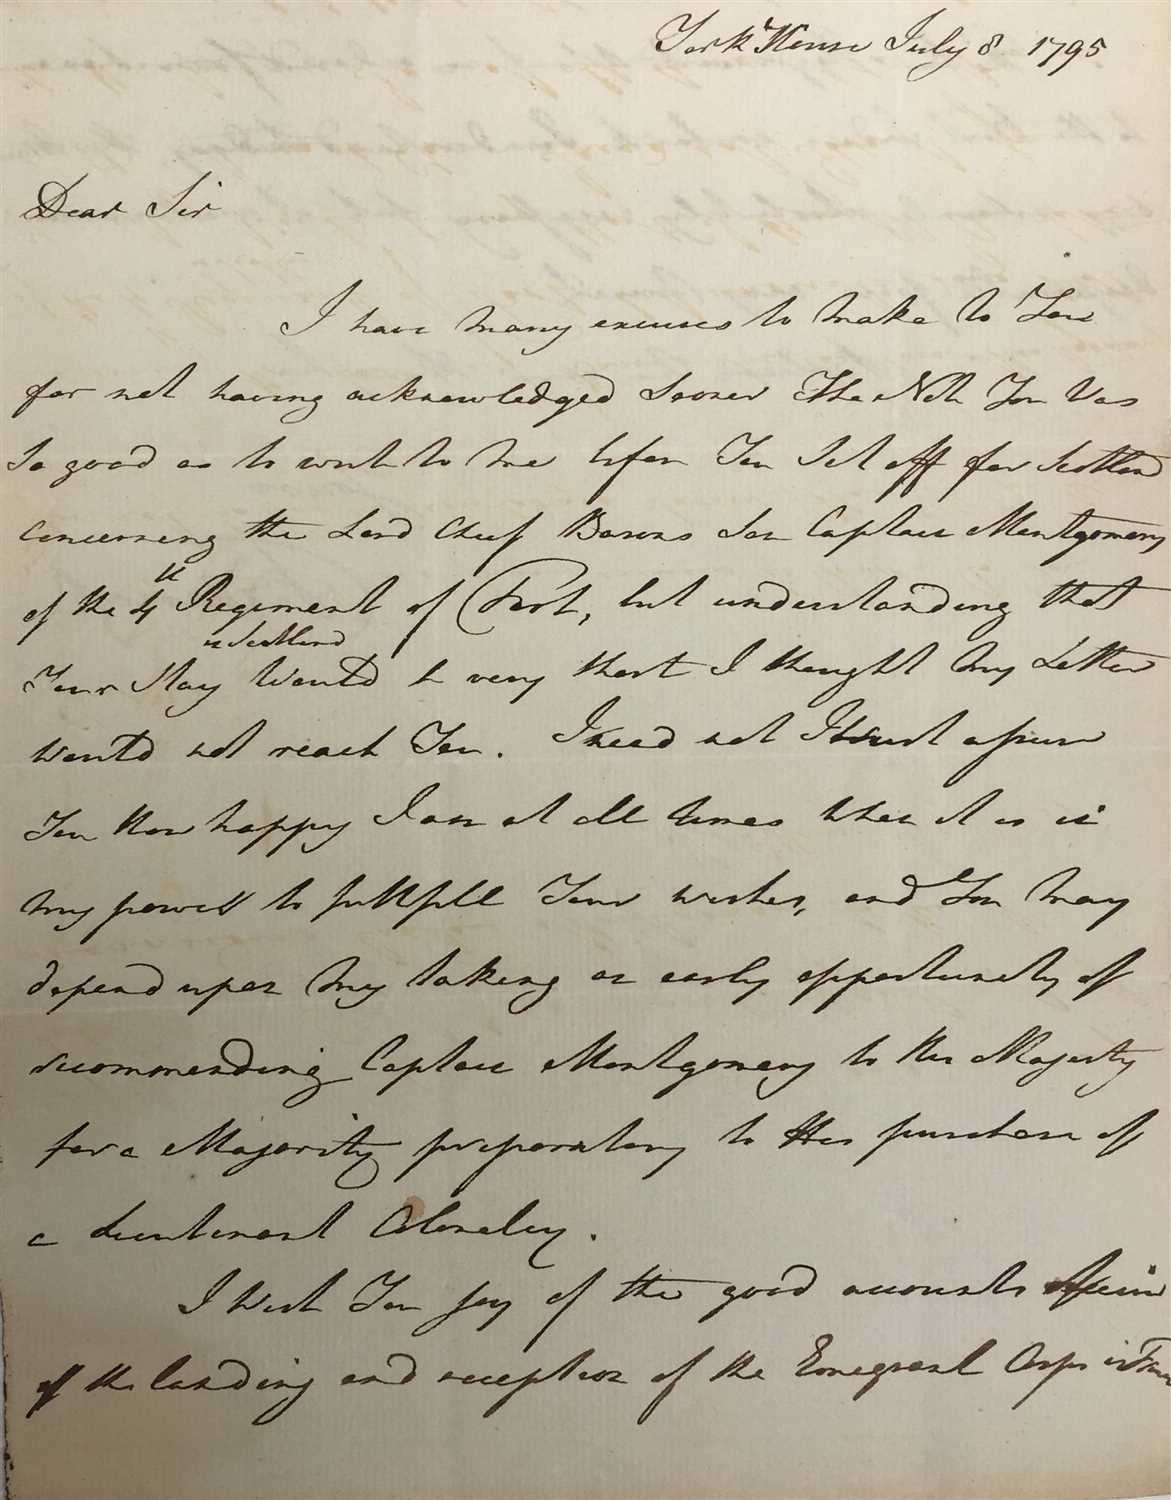 York House July 8 1795
Dear Sir
I have many excuses to make to You
for not having acknowledged sooner the Note You was
so good as to write to me before You set off for Scotland
concerning the Lord Chief Barons Son Captain Montgomery
of the 4th Regiment of Foot, but understanding that
in Scotland
Your Stay would be very short I thought my Letter
would not reach You. I need not I trust assure
You how happy I am at all times when it is in
my power to fullfill Your wishes, and You may
depend upon my taking an early opportunity of
recommending Captain Montgomery to His Majesty
for a Majority preparatory to His purchase of
a Lieutenant Colonelcy.
I wish You joy of the good accounts
of the landing and reception of the Emegrant Corps in France